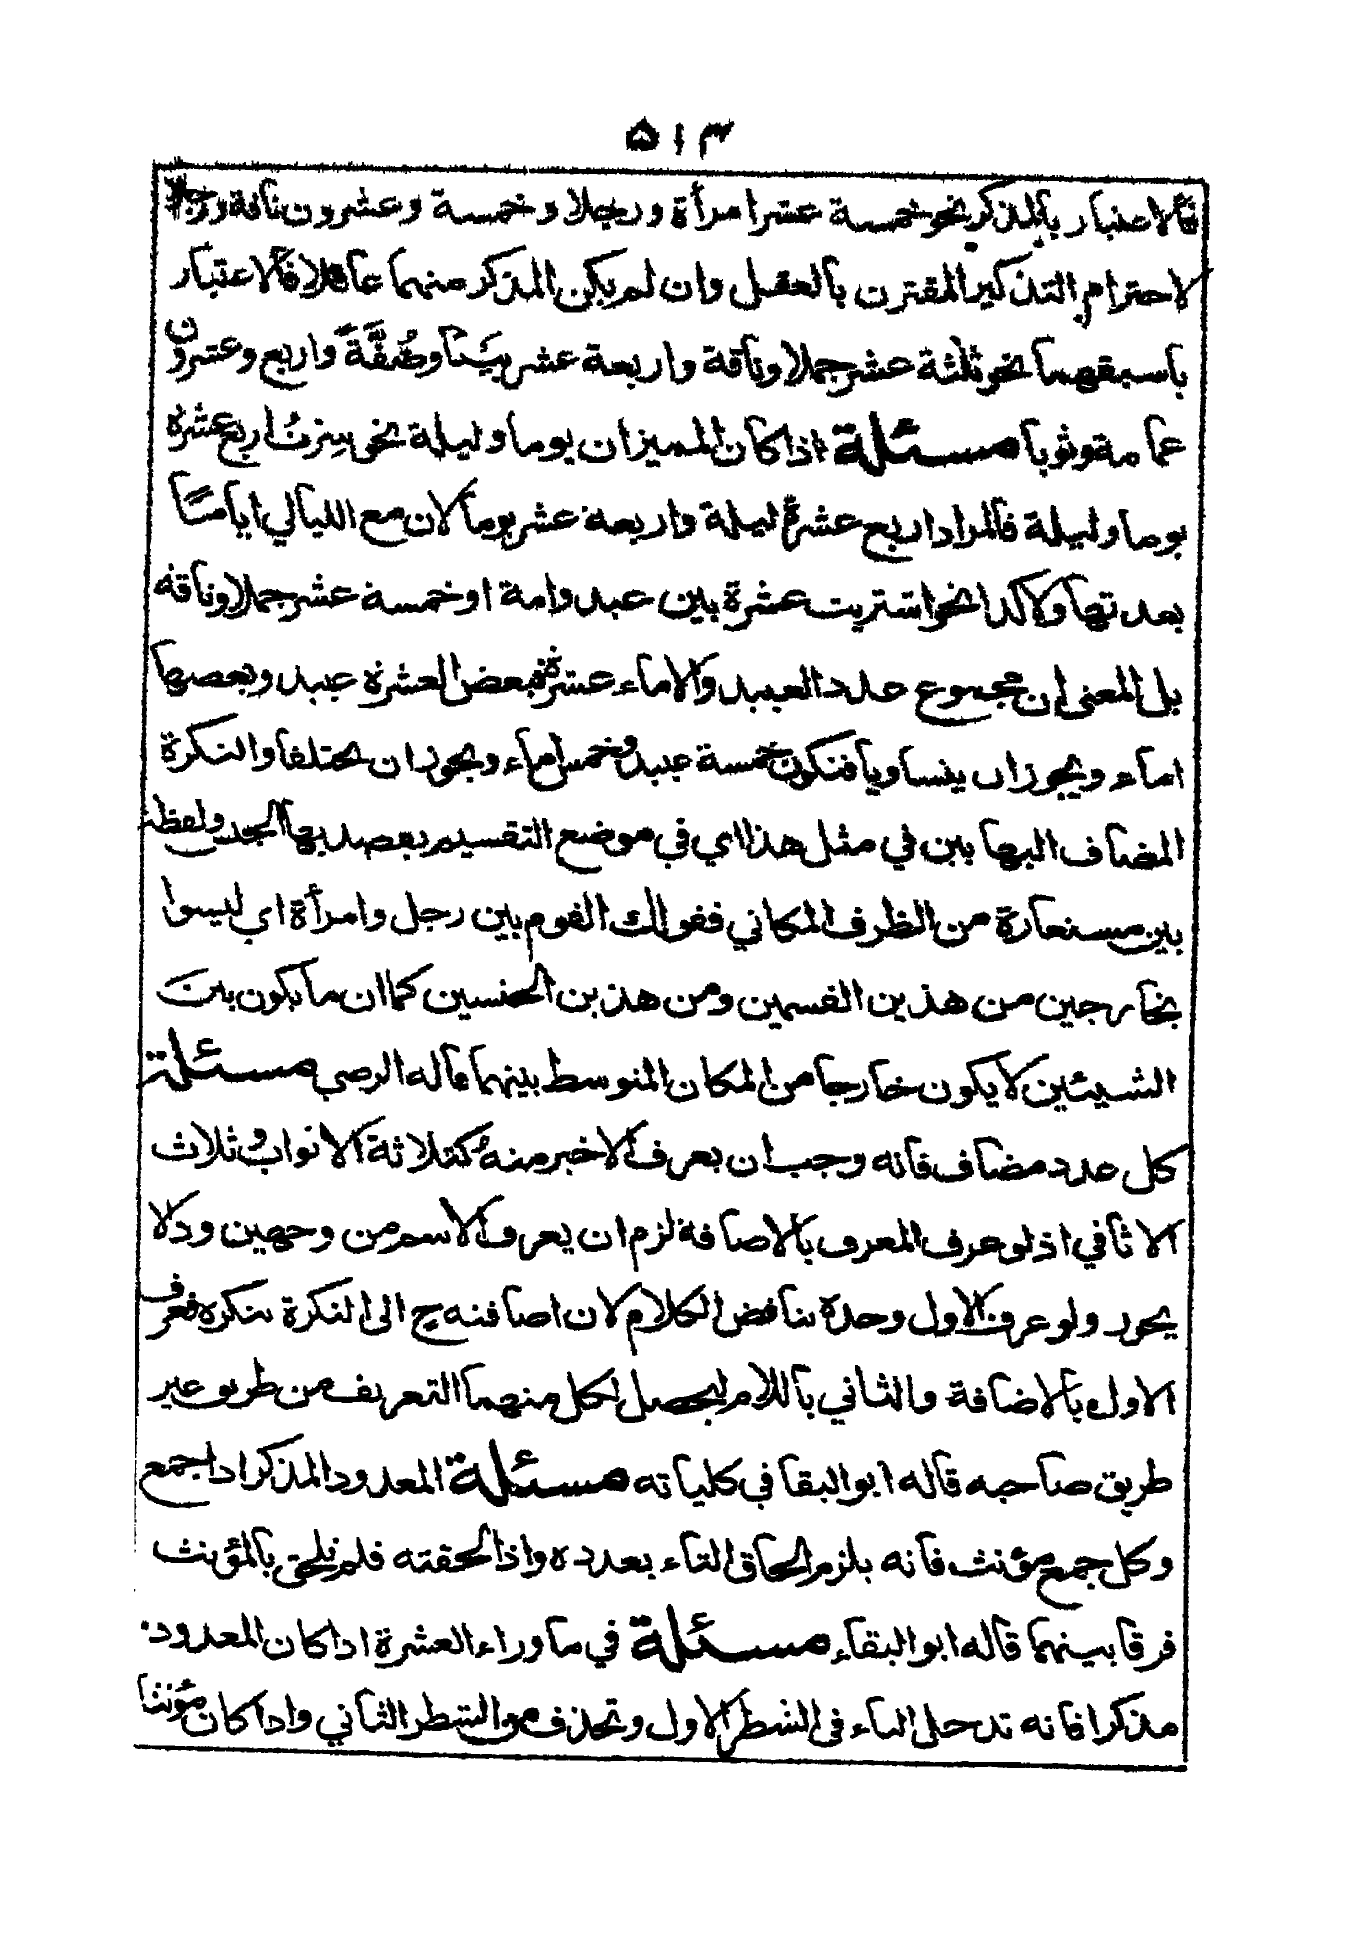 ٥١٣
فالاعتبار بالمذكر نحو خمسة عشر امرأة ورجلا وخمسة وعشرون ناقة ورجلا
لاحترام التذكير المقترن بالعقل وان لم يكن المذكر منهما عاقلا فالاعتبار
باسبقهما نحو ثلثة عشر جملا وناقة واربعة عشر بيتا وصُفَّةً واربع وعشرون
عمامة وثوبا مسئلة اذا كان المميزان يوما وليلة نحو سِرْتُ اربع عشرة
يوما وليلة فالمراد اربع عشرة ليلة واربعة عشر يوما لان مع الليالي اياما
بعدتها ولا كذا نحو اشتريت عشرة بين عبد وامة او خمسة عشر جملا وناقة
بل المعنى ان مجموع عدد العبيد والاماء عشرة فبعض العشرة عبيد وبعضها
اماء ويجوز ان يتساويا فتكون خمسة عبيد وخمس اماء ويجوز ان يختلفا والنكرة
المضاف اليها بين في مثل هذا اي في موضع التقسيم يقصد بها الجنس ولفظة
بين مستعارة من الظرف المكاني فقولك القوم بين رجل وامرأة اي ليسوا
بخارجين من هذين القسمين ومن هذين الجنسين كما ان ما يكون بين
الشيئين لا يكون خارجا من المكان المتوسط بينهما قاله الرضي مسئلة
كل عدد مضاف فانه وجب ان يعرف الاخير منه كثلاثة الاثواب وثلاث
الاثافي اذ لو عرف المعرف بالاضافة لزم ان يعرف الاسم من وجهين وذلا
يجوز ولو عرف الاول وحده يناقض الكلام لان اضافته ح الى النكرة تنكره فعرف
الاول بالاضافة والثاني باللام ليحصل لكل منهما التعريف من طريق غير
طريق صاحبه قاله ابو البقا في كلياته مسئلة المعدود المذكر اذا جمع
وكل جمع مؤنث فانه يلزم الحاق التاء بعدده واذا لحقته فلم تلحق بالمؤنث
فرقا بينهما قاله ابو البقاء مسئلة في ما وراء العشرة اذا كان المعدود
مذكرا فانه تدخل التاء في الشطر الاول وتحذف من الشطر الثاني واذا كان مؤنثا